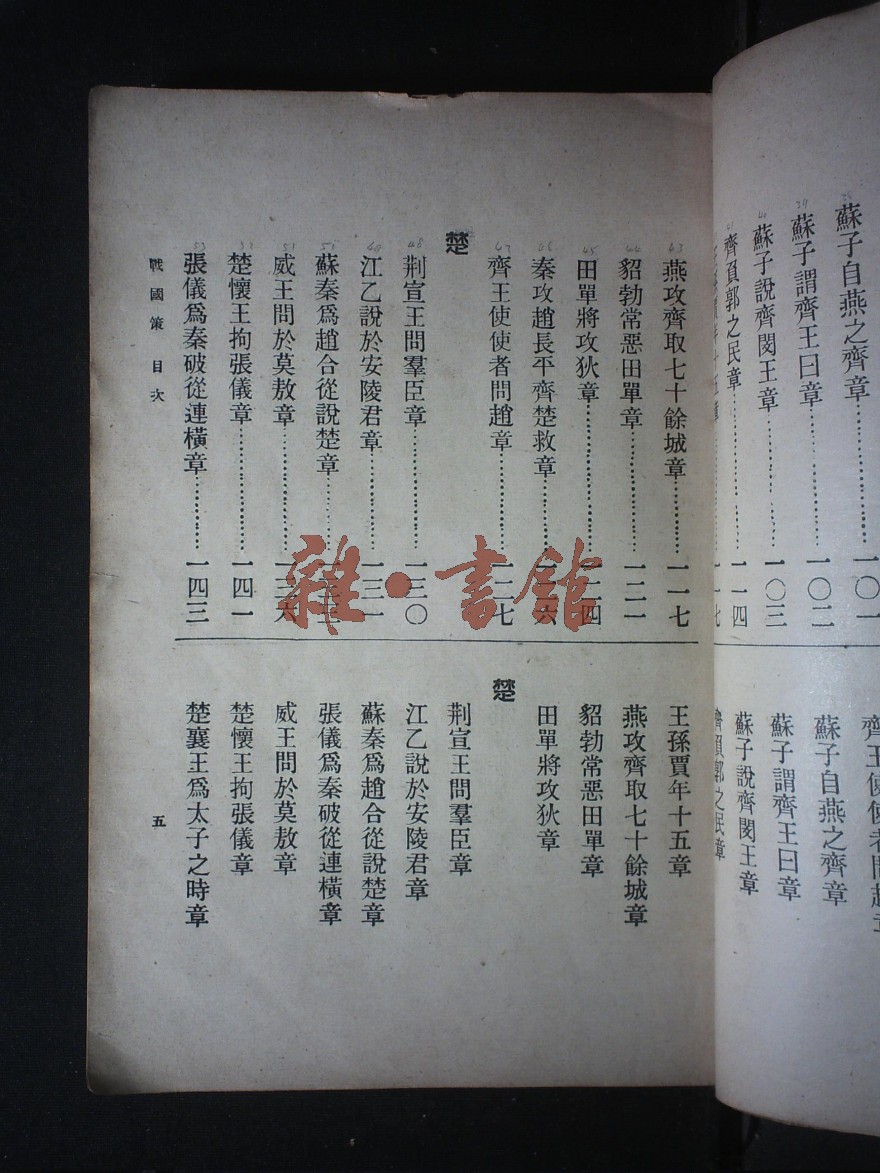 蘇子自燕之齊章……一〇一
39
蘇子謂齊王曰章……一〇二
40
蘇子說齊閔王章……一〇三
41
齊負郭之民章……一一四
十五章……一一七
齊王使使者問趙
蘇子自燕之齊章
蘇子謂齊王曰章
蘇子說齊閔王章
齊負郭之民章
43
燕攻齊取七十餘城章……一一七
44
貂勃常惡田單章……一二一
45
田單將攻狄章……一二四
46
秦攻趙長平齊楚救章……一二六
47
齊王使使者問趙章……一二七
楚
48
荆宣王問羣臣章……一三〇
49
江乙說於安陵君章……一三一
50
蘇秦爲趙合從說楚章……
51
威王問於莫敖章……一三六
52
楚懷王拘張儀章……一四一
53
張儀爲秦破從連橫章……一四三
王孫賈年十五章
燕攻齊取七十餘城章
貂勃常惡田單章
田單將攻狄章
楚
荆宣王問羣臣章
江乙說於安陵君章
蘇秦爲趙合從說楚章
張儀爲秦破從連橫章
威王問於莫敖章
楚懷王拘張儀章
楚襄王爲太子之時章
戰國策 目次
五
雜·書館